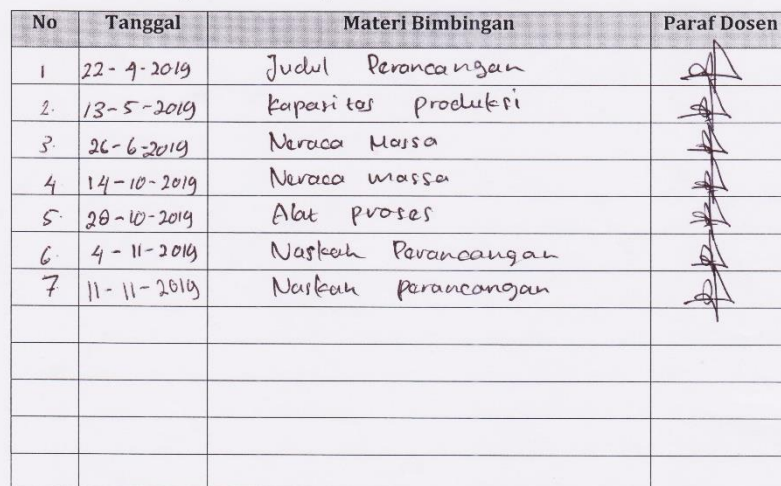 No Tanggal Materi Bimbingan Paraf Dosen
1 22-4-2019 Judul Perancangan
2. 13-5-2019 Kapasitas produksi
3. 26-6-2019 Neraca Massa
4 14-10-2019 Neraca massa
5. 28-10-2019 Alat proses
6. 4-11-2019 Naskah Perancangan
7. 11-11-2019 Naskah perancangan